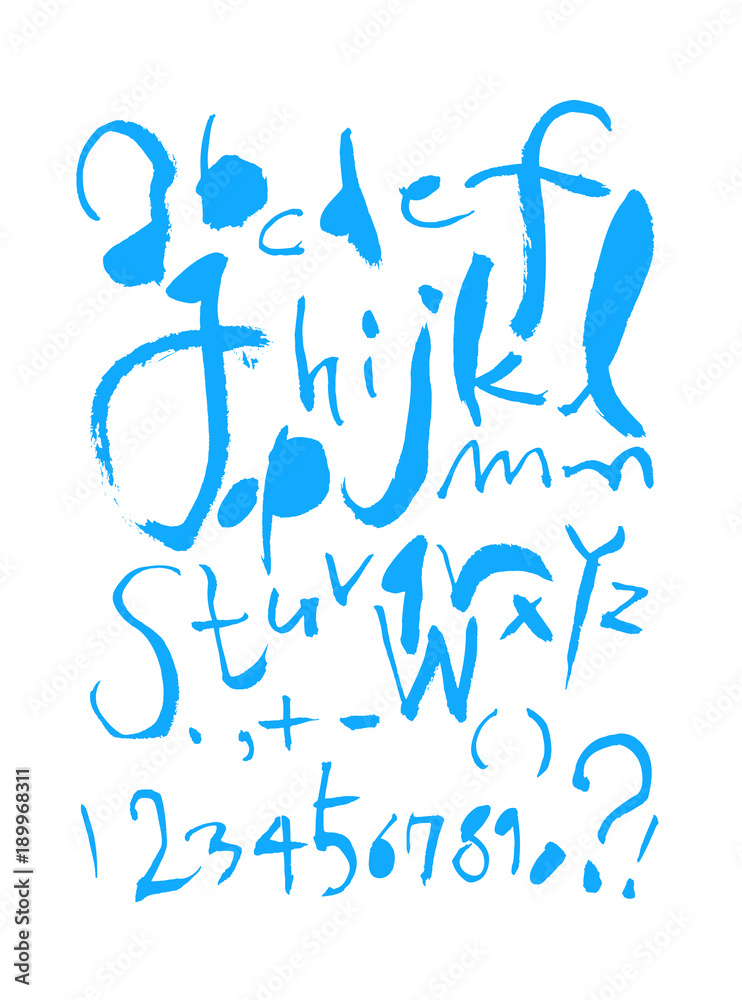 abcdef
ghijkl
opmn
stuvqrwxyz
.,+-()
1234567890?!
Adobe Stock | #189968311